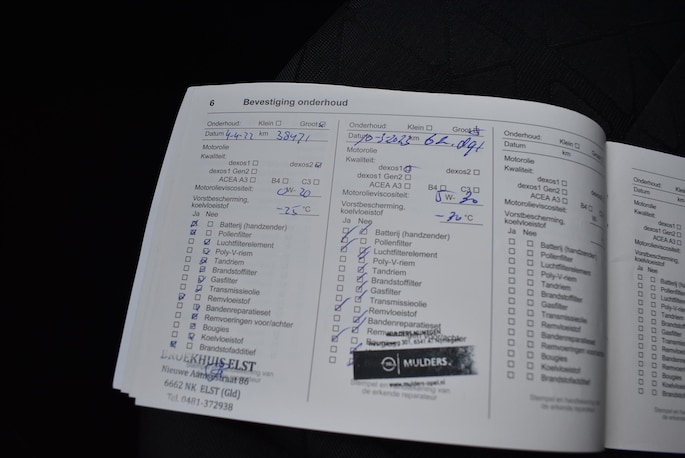 6 Bevestiging onderhoud
Onderhoud: Klein Groot
Datum 4-4-22 km 38471
Motorolie
Kwaliteit:
dexos1 dexos2
dexos1 Gen2
ACEA A3 B4 C3
Motorolieviscositeit: 0W-20
Vorstbescherming, koelvloeistof -25 °C
Ja Nee
Batterij (handzender)
Pollenfilter
Luchtfilterelement
Poly-V-riem
Tandriem
Brandstoffilter
Gasfilter
Transmissieolie
Remvloeistof
Bandenreparatieset
Remvoeringen voor/achter
Bougies
Koelvloeistof
Brandstofadditief
BROEKHUIS ELST
Nieuwe Aamsestraat 86
6662 NK ELST (Gld)
Tel. 0481-372938
Onderhoud: Klein Groot
Datum km
Motorolie
Kwaliteit:
dexos1 dexos2
dexos1 Gen2
ACEA A3 B4 C3
Motorolieviscositeit: 5W-30
Vorstbescherming, koelvloeistof -30 °C
Ja Nee
Batterij (handzender)
Pollenfilter
Luchtfilterelement
Poly-V-riem
Tandriem
Brandstoffilter
Gasfilter
Transmissieolie
Remvloeistof
Bandenreparatieset
MULDERS
www.mulders-opel.nl
de erkende reparateur
Onderhoud: Klein Groot
Datum km
Motorolie
Kwaliteit:
dexos1 dexos2
dexos1 Gen2
ACEA A3 B4 C3
Motorolieviscositeit: W-
Vorstbescherming, koelvloeistof °C
Ja Nee
Batterij (handzender)
Pollenfilter
Luchtfilterelement
Poly-V-riem
Tandriem
Brandstoffilter
Gasfilter
Transmissieolie
Remvloeistof
Bandenreparatieset
Remvoeringen voor/achter
Bougies
Koelvloeistof
Brandstofadditief
de erkende reparateur
Onderhoud: Klein
Datum
Motorolie
Kwaliteit:
dexos1
dexos1 Gen2
ACEA A3
Motorolieviscositeit:
Vorstbescherming, koelvloeistof
Ja Nee